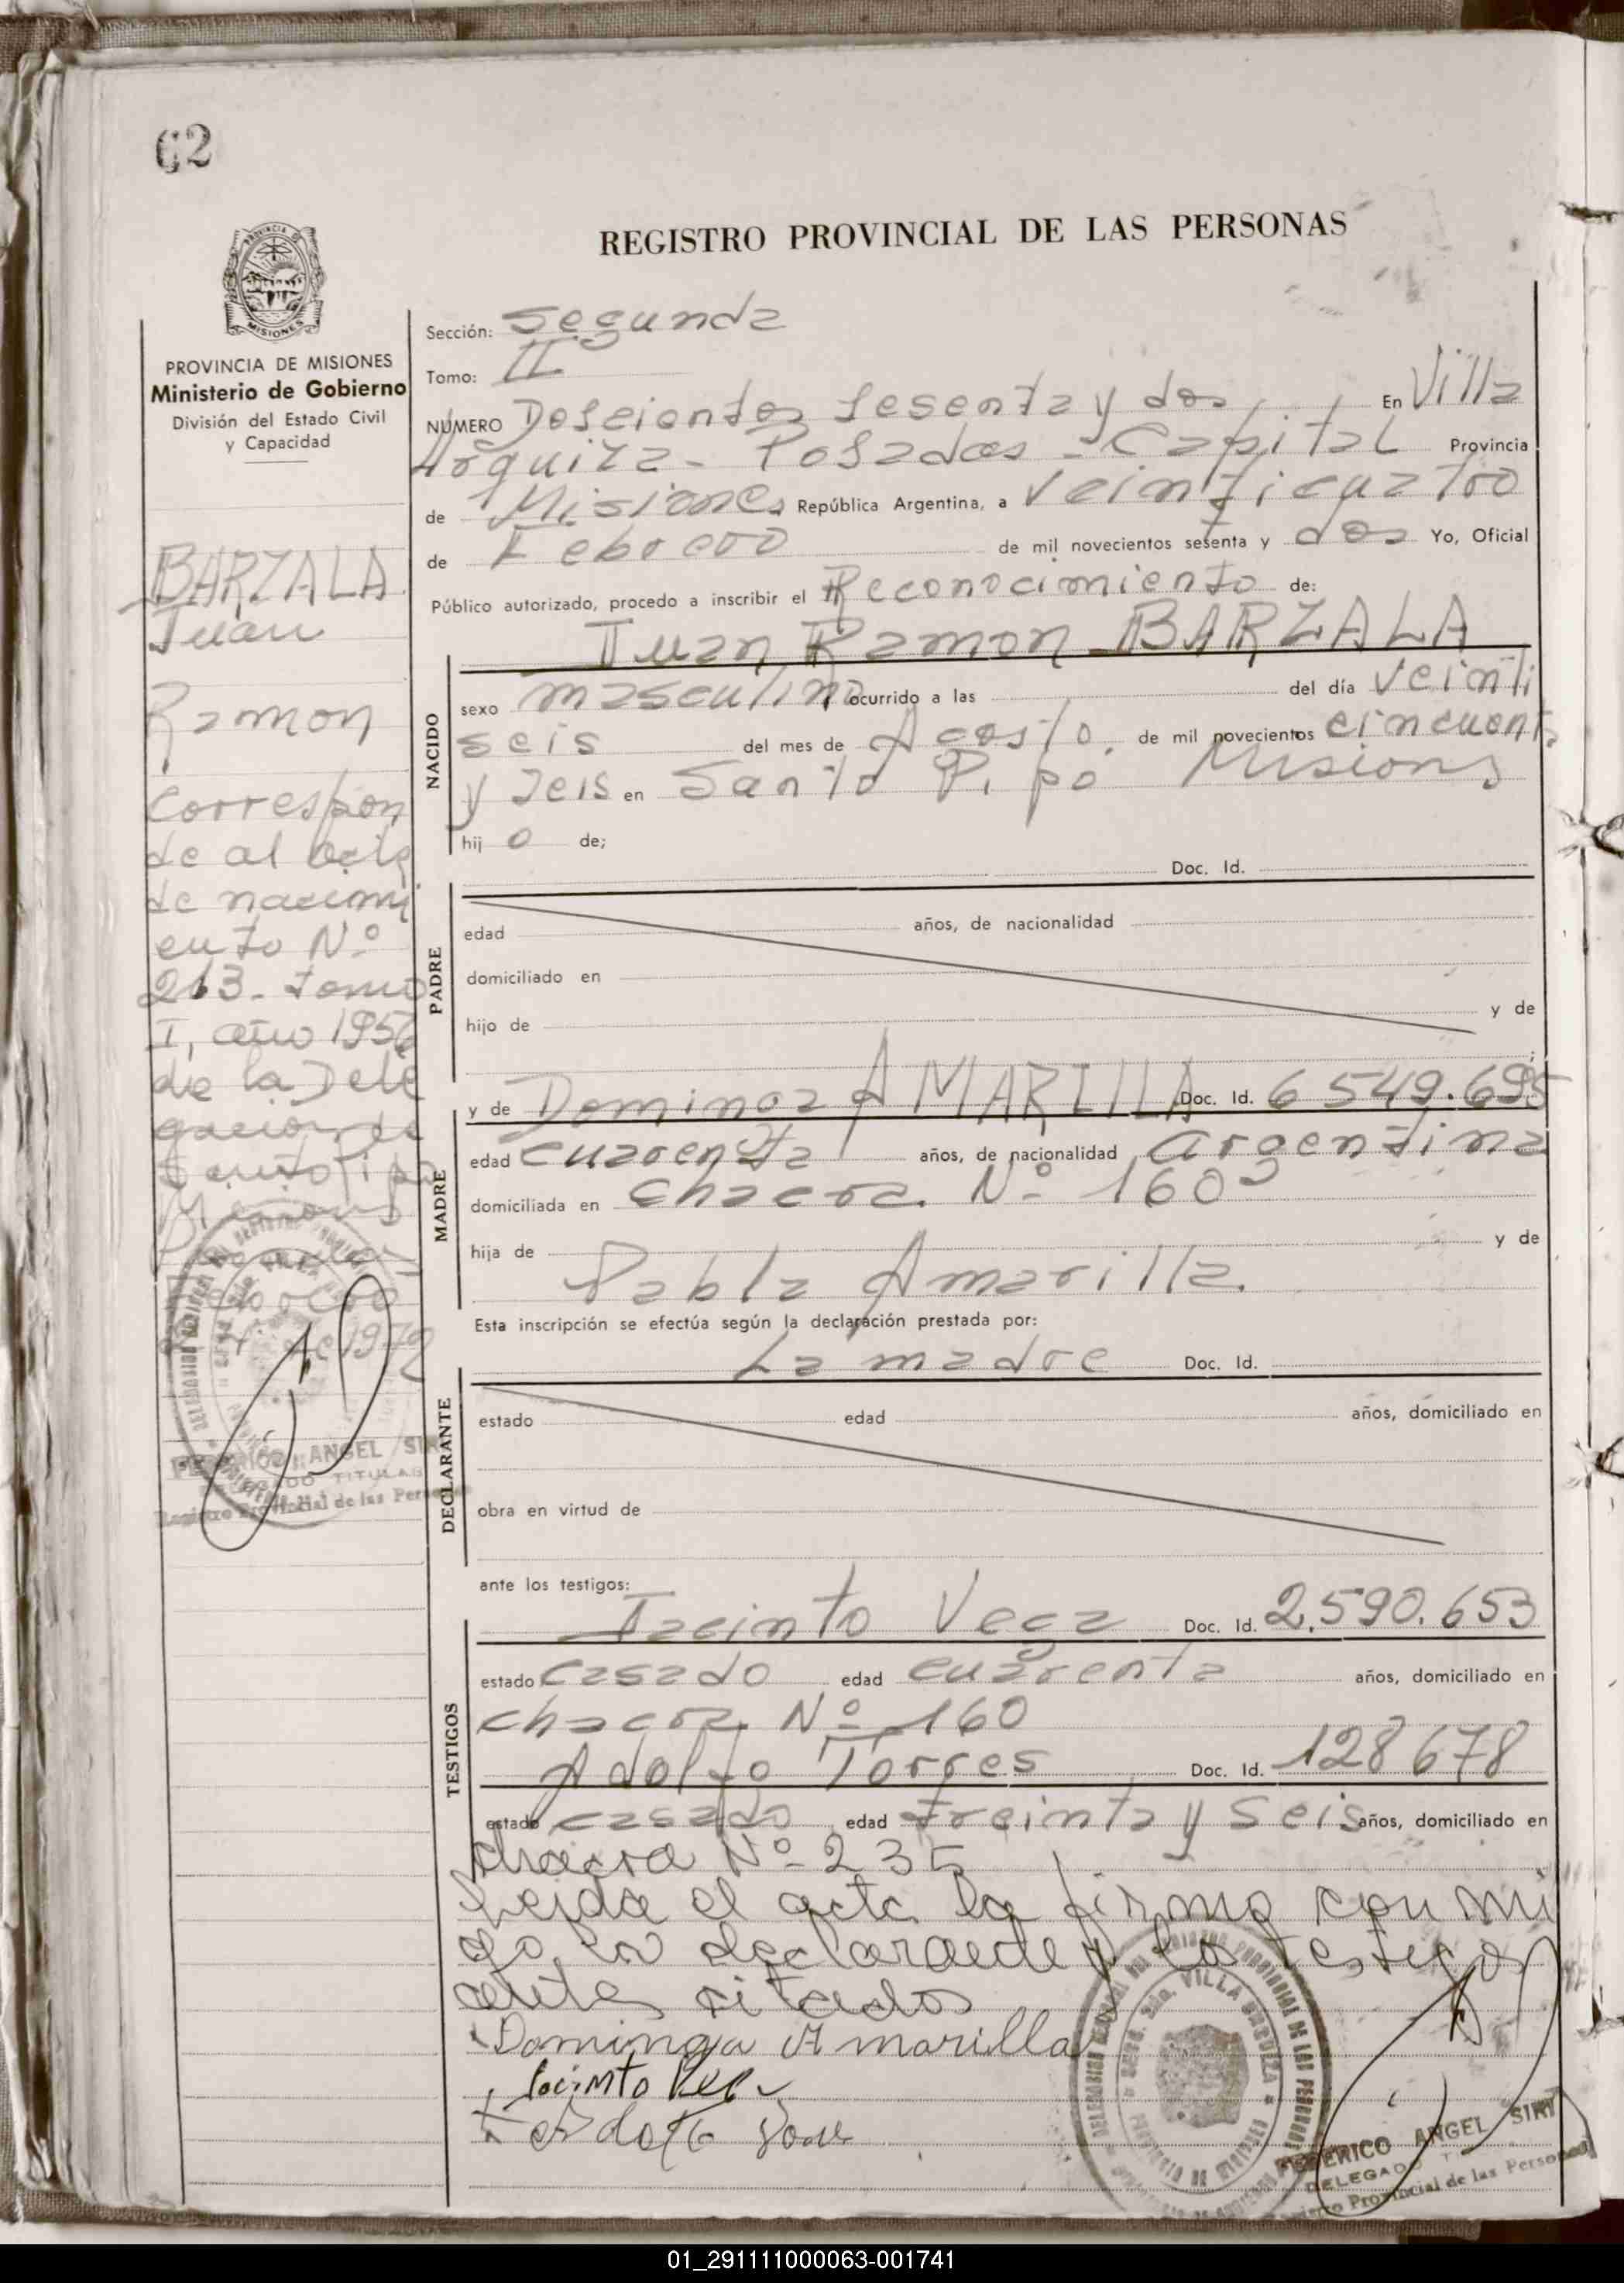 62
REGISTRO PROVINCIAL DE LAS PERSONAS
MISIONES
PROVINCIA DE MISIONES
Ministerio de Gobierno
División del Estado Civil
y Capacidad
BARZALA
Juan
Ramon
Correspon
de al acta
de nacimi
ento Nº
213- tomo
I, año 1956
de la Dele
gacion de
Santo Pipo
Misiones
FEDERICO ANGEL SIRI
DELEGADO TITULAR
Registro Provincial de las Personas
Sección: Segunda
Tomo: II
NÚMERO Doscientos sesenta y dos En Villa
Urquiza - Posadas - Capital Provincia
de Misiones República Argentina, a veinticuatro
de Febrero de mil novecientos sesenta y dos Yo, Oficial
Público autorizado, procedo a inscribir el Reconocimiento de:
Juan Ramon BARZALA
NACIDO
sexo masculino ocurrido a las del día veinti
seis del mes de Agosto, de mil novecientos cincuent
y seis en Santo Pipo Misiones
hij o de;
Doc. Id.
PADRE
edad años, de nacionalidad
domiciliado en
hijo de y de
MADRE
y de Dominga AMARILLA Doc. Id. 6 549.695
edad cuarenta años, de nacionalidad argentina
domiciliada en chacra Nº 160
hija de y de
Pabla Amarilla.
Esta inscripción se efectúa según la declaración prestada por:
La madre Doc. Id.
DECLARANTE
estado edad años, domiciliado en
obra en virtud de
ante los testigos:
TESTIGOS
Jacinto Vega Doc. Id. 2.590.653
estado casado edad cuarenta años, domiciliado en
chacra Nº 160
Adolfo Torres Doc. Id. 128678
estado casado edad treinta y seis años, domiciliado en
chacra Nº 235
Leida el acta la firma con mi
go la declarante y los testigos
antes citados
Dominga Amarilla
Jacinto Vega
FEDERICO ANGEL SIRI
DELEGADO
Registro Provincial de las Personas
01_291111000063-001741